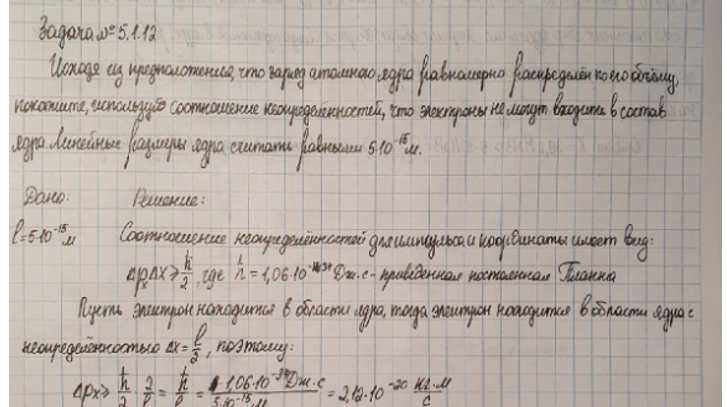 Задача № 5.1.12
Исходя из предположения, что заряд атомного ядра равномерно распределён по его объёму,
покажите, используя соотношение неопределённостей, что электроны не могут входить в состав
ядра. Линейные размеры ядра считать равными 5·10⁻¹⁵ м.
Дано: Решение:
l = 5·10⁻¹⁵ м Соотношение неопределённостей для импульса и координаты имеет вид:
Δpₓ Δx ≥ ħ/2, где ħ = 1,06·10⁻³⁴ Дж·с - приведенная постоянная Планка
Пусть электрон находится в области ядра, тогда электрон находится в области ядра с
неопределённостью Δx = l/2, поэтому:
Δpₓ ≥ ħ/2 · 2/l = ħ/l = 1,06·10⁻³⁴ Дж·с / 5·10⁻¹⁵ м = 2,12·10⁻²⁰ кг·м/с